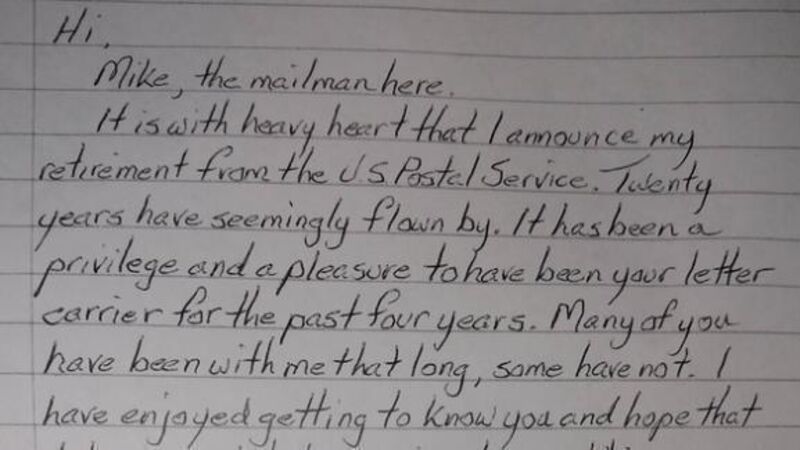 Hi,
Mike, the mailman here.
It is with heavy heart that I announce my
retirement from the U.S. Postal Service. Twenty
years have seemingly flown by. It has been a
privilege and a pleasure to have been your letter
carrier for the past four years. Many of you
have been with me that long, some have not. I
have enjoyed getting to know you and hope that